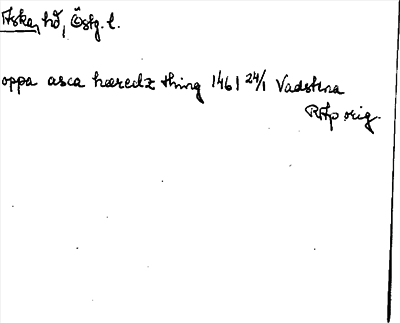 Aska, hd, Östg. l.
oppa asca hæredz thing 1461 24/1 Vadstena
RAp orig.